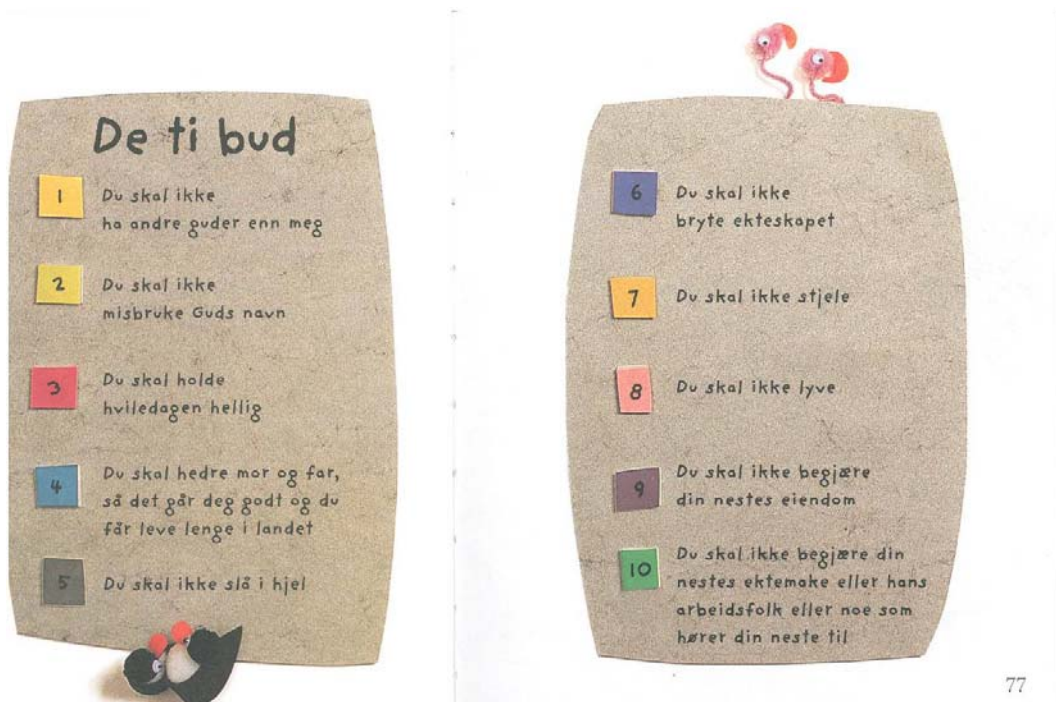 De ti bud
1
Du skal ikke
ha andre guder enn meg
2
Du skal ikke
misbruke Guds navn
3
Du skal holde
hviledagen hellig
4
Du skal hedre mor og far,
så det går deg godt og du
får leve lenge i landet
5
Du skal ikke slå i hjel
6
Du skal ikke
bryte ekteskapet
7
Du skal ikke stjele
8
Du skal ikke lyve
9
Du skal ikke begjære
din nestes eiendom
10
Du skal ikke begjære din
nestes ektemake eller hans
arbeidsfolk eller noe som
hører din neste til
77